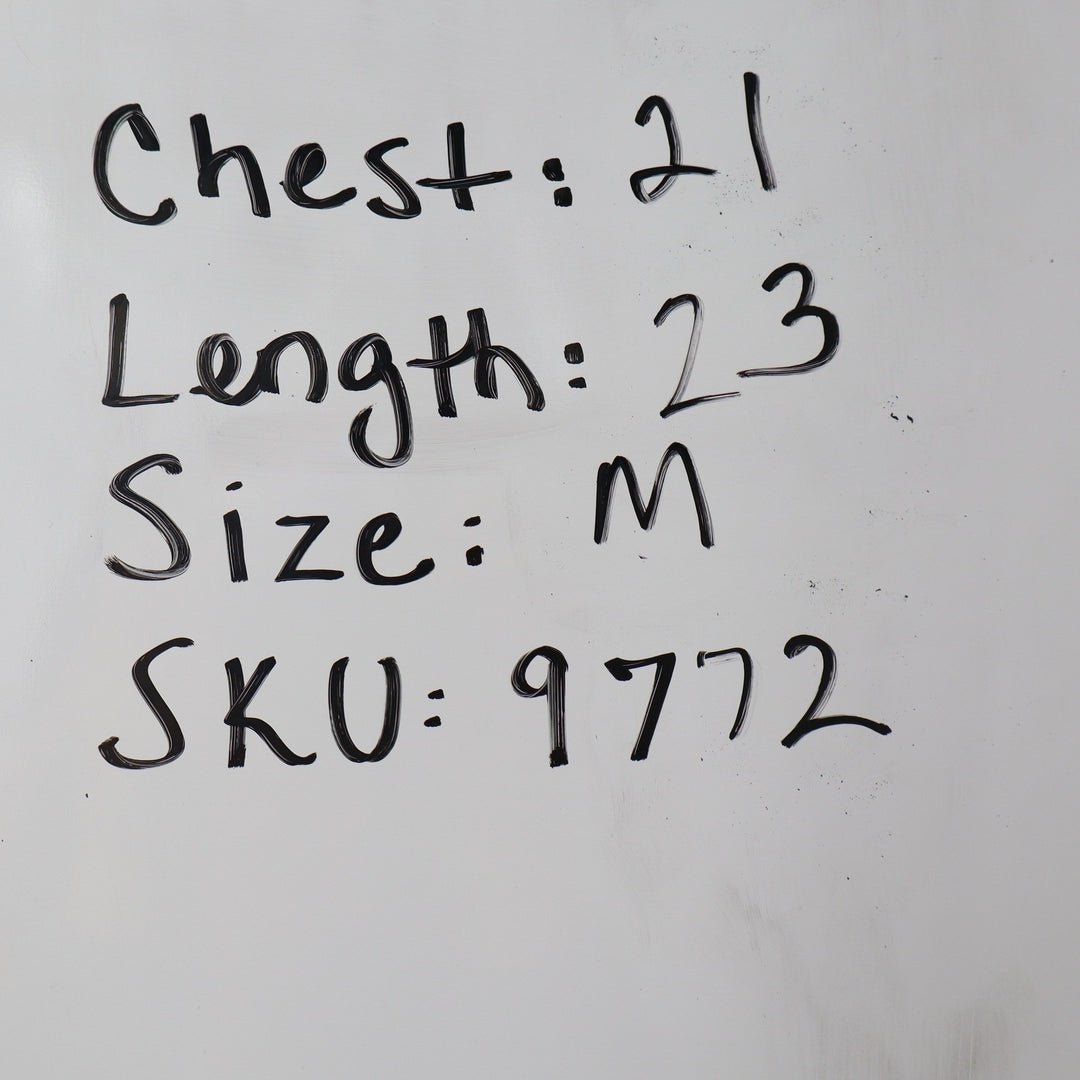 Chest: 21
Length: 23
Size: M
SKU: 9772